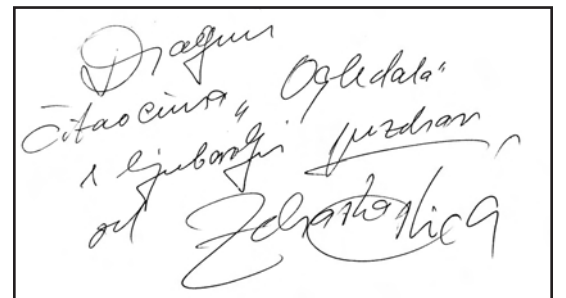 Dragim
čitaocima „Ogledala“
s ljubavlju pozdrav
od Zdravka Čolića